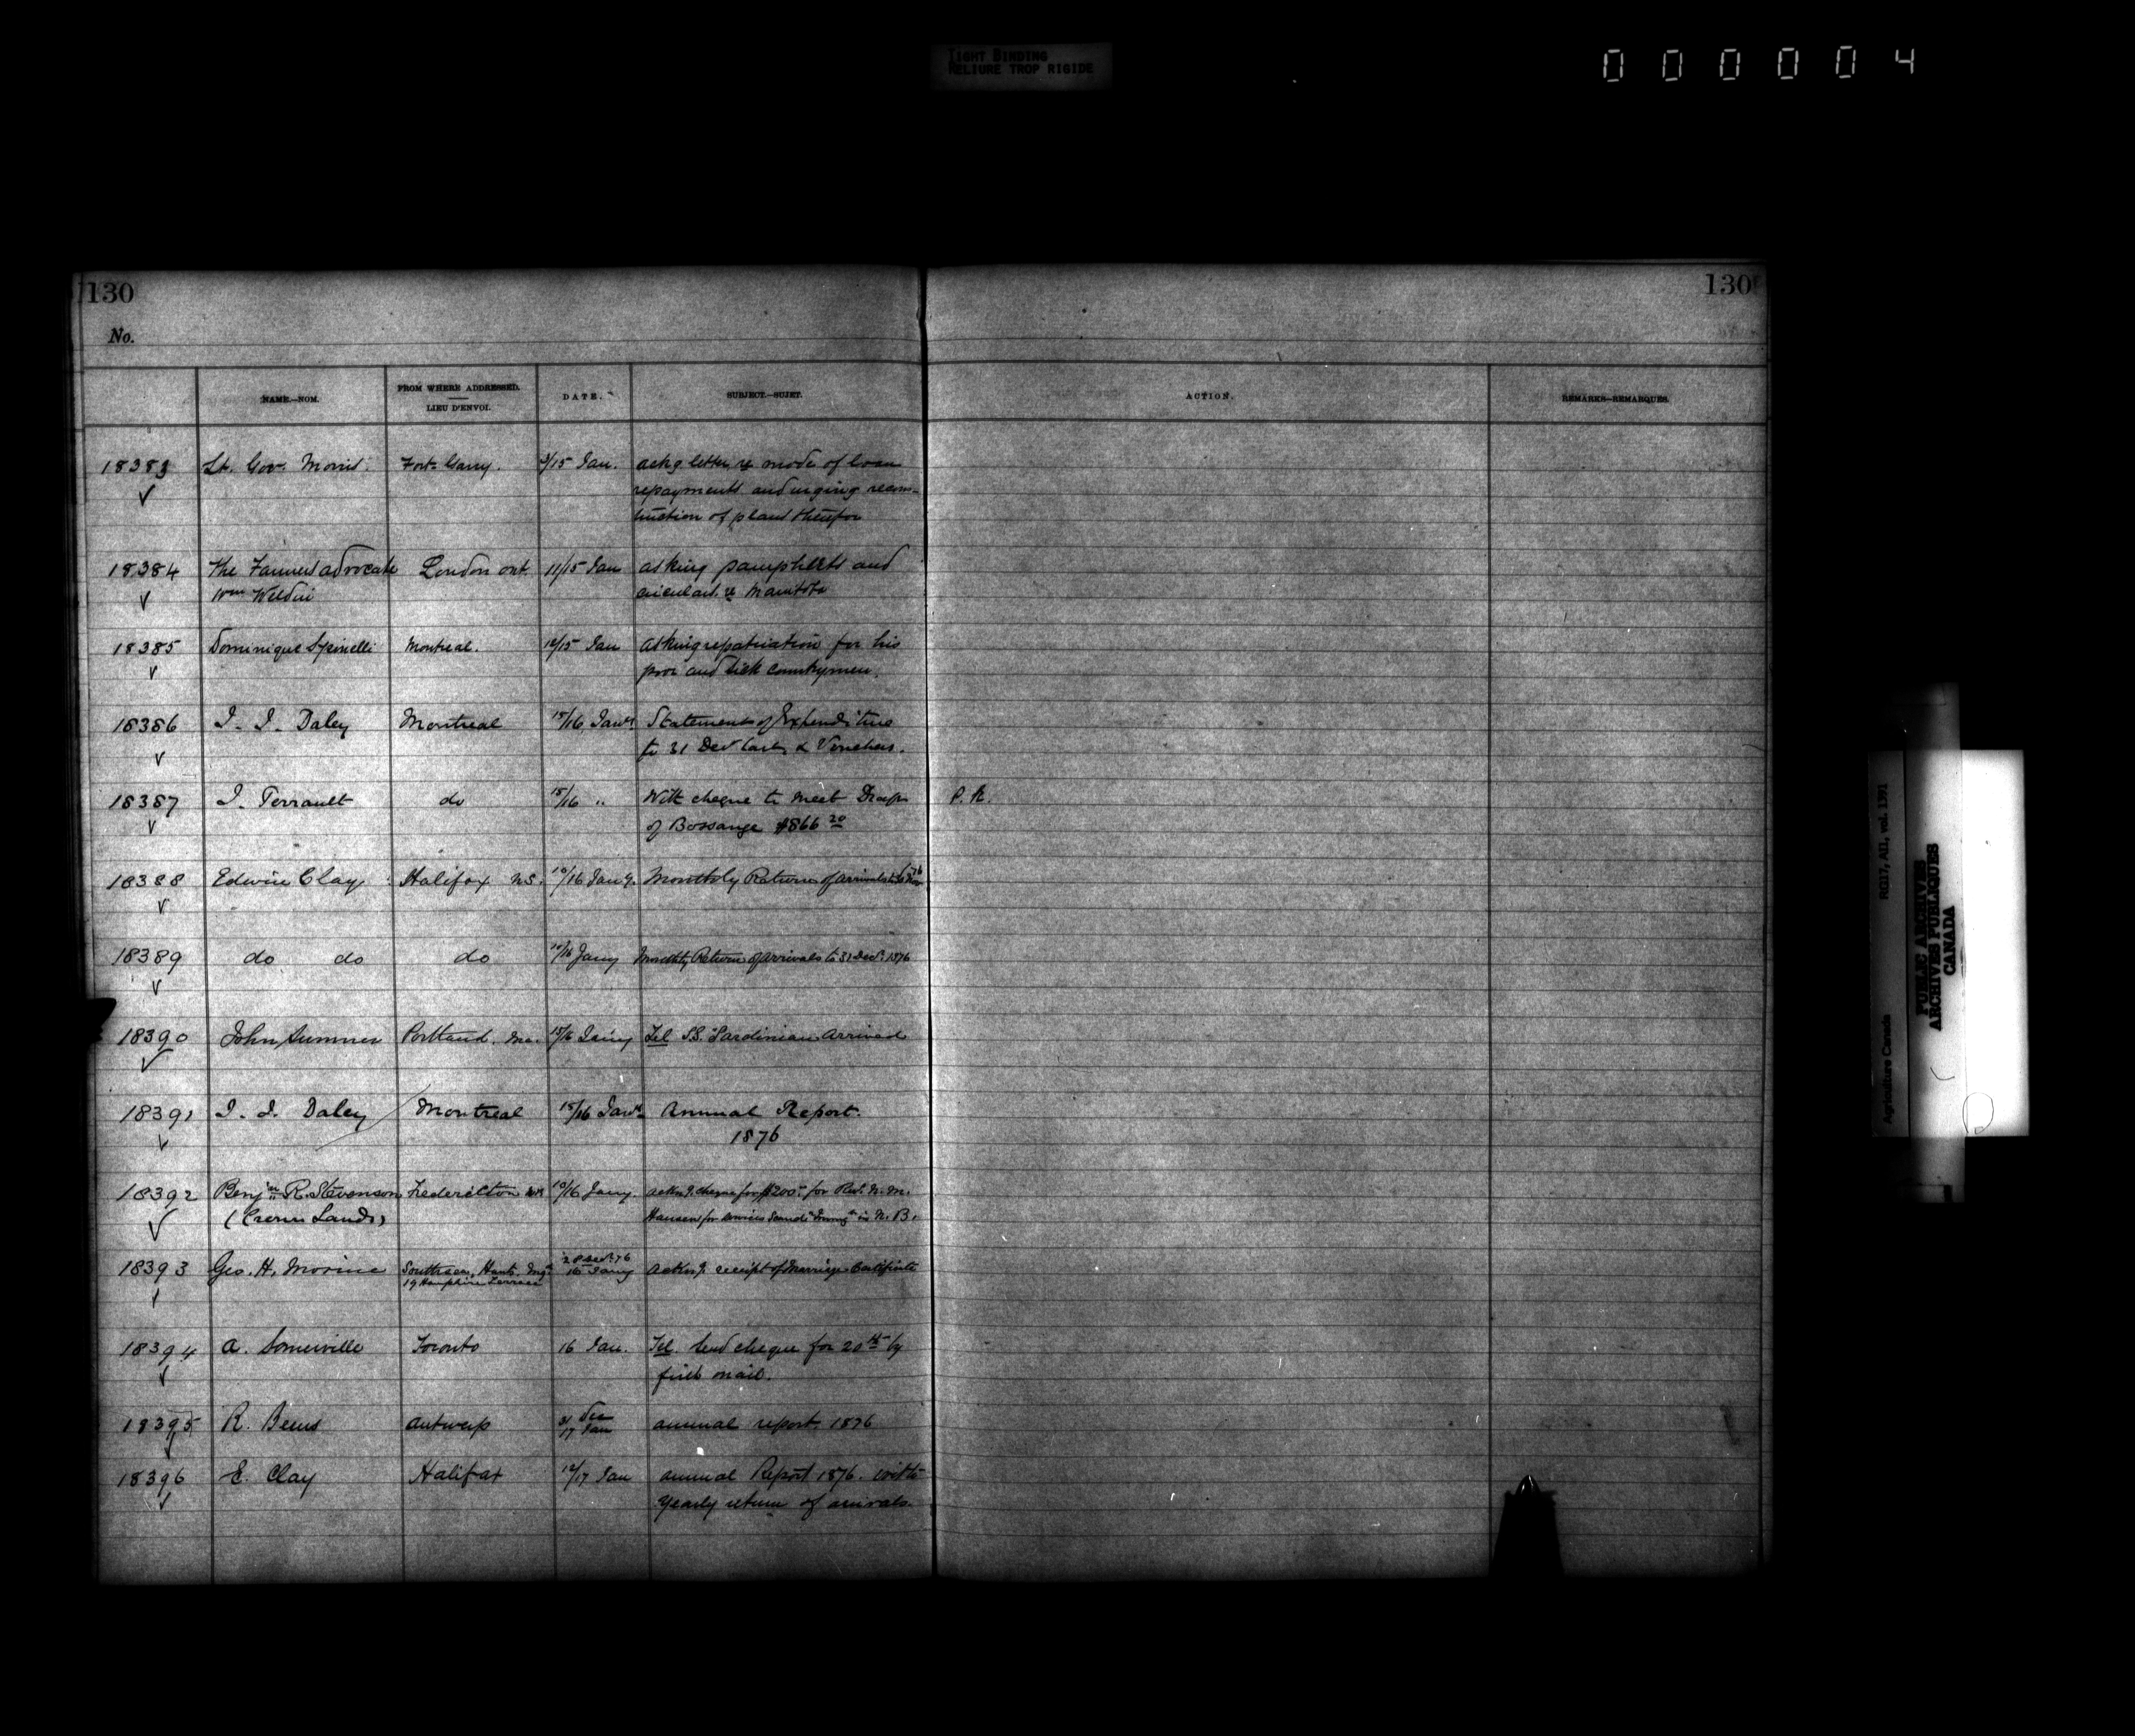 TIGHT BINDING
RELIURE TROP RIGIDE
000004
130
130
No.
NAME.—NOM.
FROM WHERE ADDRESSED.
LIEU D'ENVOI.
DATE.
SUBJECT.—SUJET.
ACTION.
REMARKS—REMARQUES.
18383 Lt. Gov. Morris. Fort Garry. 3/15 Jan. ackg letter re mode of loan
repayments and urging
of plan therefor
18384 The Farmers advocate London ont 11/15 Jan asking pamphlets and
Wm Weldin
circulars re Manitoba
18385 Dominique Spinelli Montreal. 12/15 Jan asking repatriation for his
poor and sick countrymen.
18386 J. J. Daley Montreal 15/16 Jany Statements of Expenditure
to 31 Decr last & Vouchers.
18387 J. Perrault do 15/16 " With cheque to meet Draft P. R.
of Bossange $866 20
18388 Edwin Clay Halifax NS. 10/16 Jany. Monthly Return of arrivals to 30 Nov 76
18389 do do do 10/16 Jany Monthly Return of arrivals to 31 Decr. 1876
18390 John Sumner Portland. Me. 15/16 Jany Tel SS. "Sardinian arrived
18391 J. J. Daley Montreal 15/16 Jany Annual Report.
1876
18392 Benjm R. Stevenson Fredericton NB 10/16 Jany. ackng. cheque for $200. for Revd. N. M.
(Crown Lands)
Hansen for services in N. B.
18393 Geo. H. Morine Southsea, Hants. Eng. 28 Decr. 76 ackng. receipt of Marriage Certificate
19 Hampshire Terrace 16 Jany
18394 A. Somerville Toronto 16 Jan. Tel. Send cheque for 20th by
first mail.
18395 R. Berns Antwerp 31 Dec annual report. 1876
17 Jan
18396 E. Clay Halifax 12/17 Jan annual Report 1876. with
Yearly return of arrivals.
Agriculture Canada RG17, AII, vol. 1391
PUBLIC ARCHIVES
ARCHIVES PUBLIQUES
CANADA